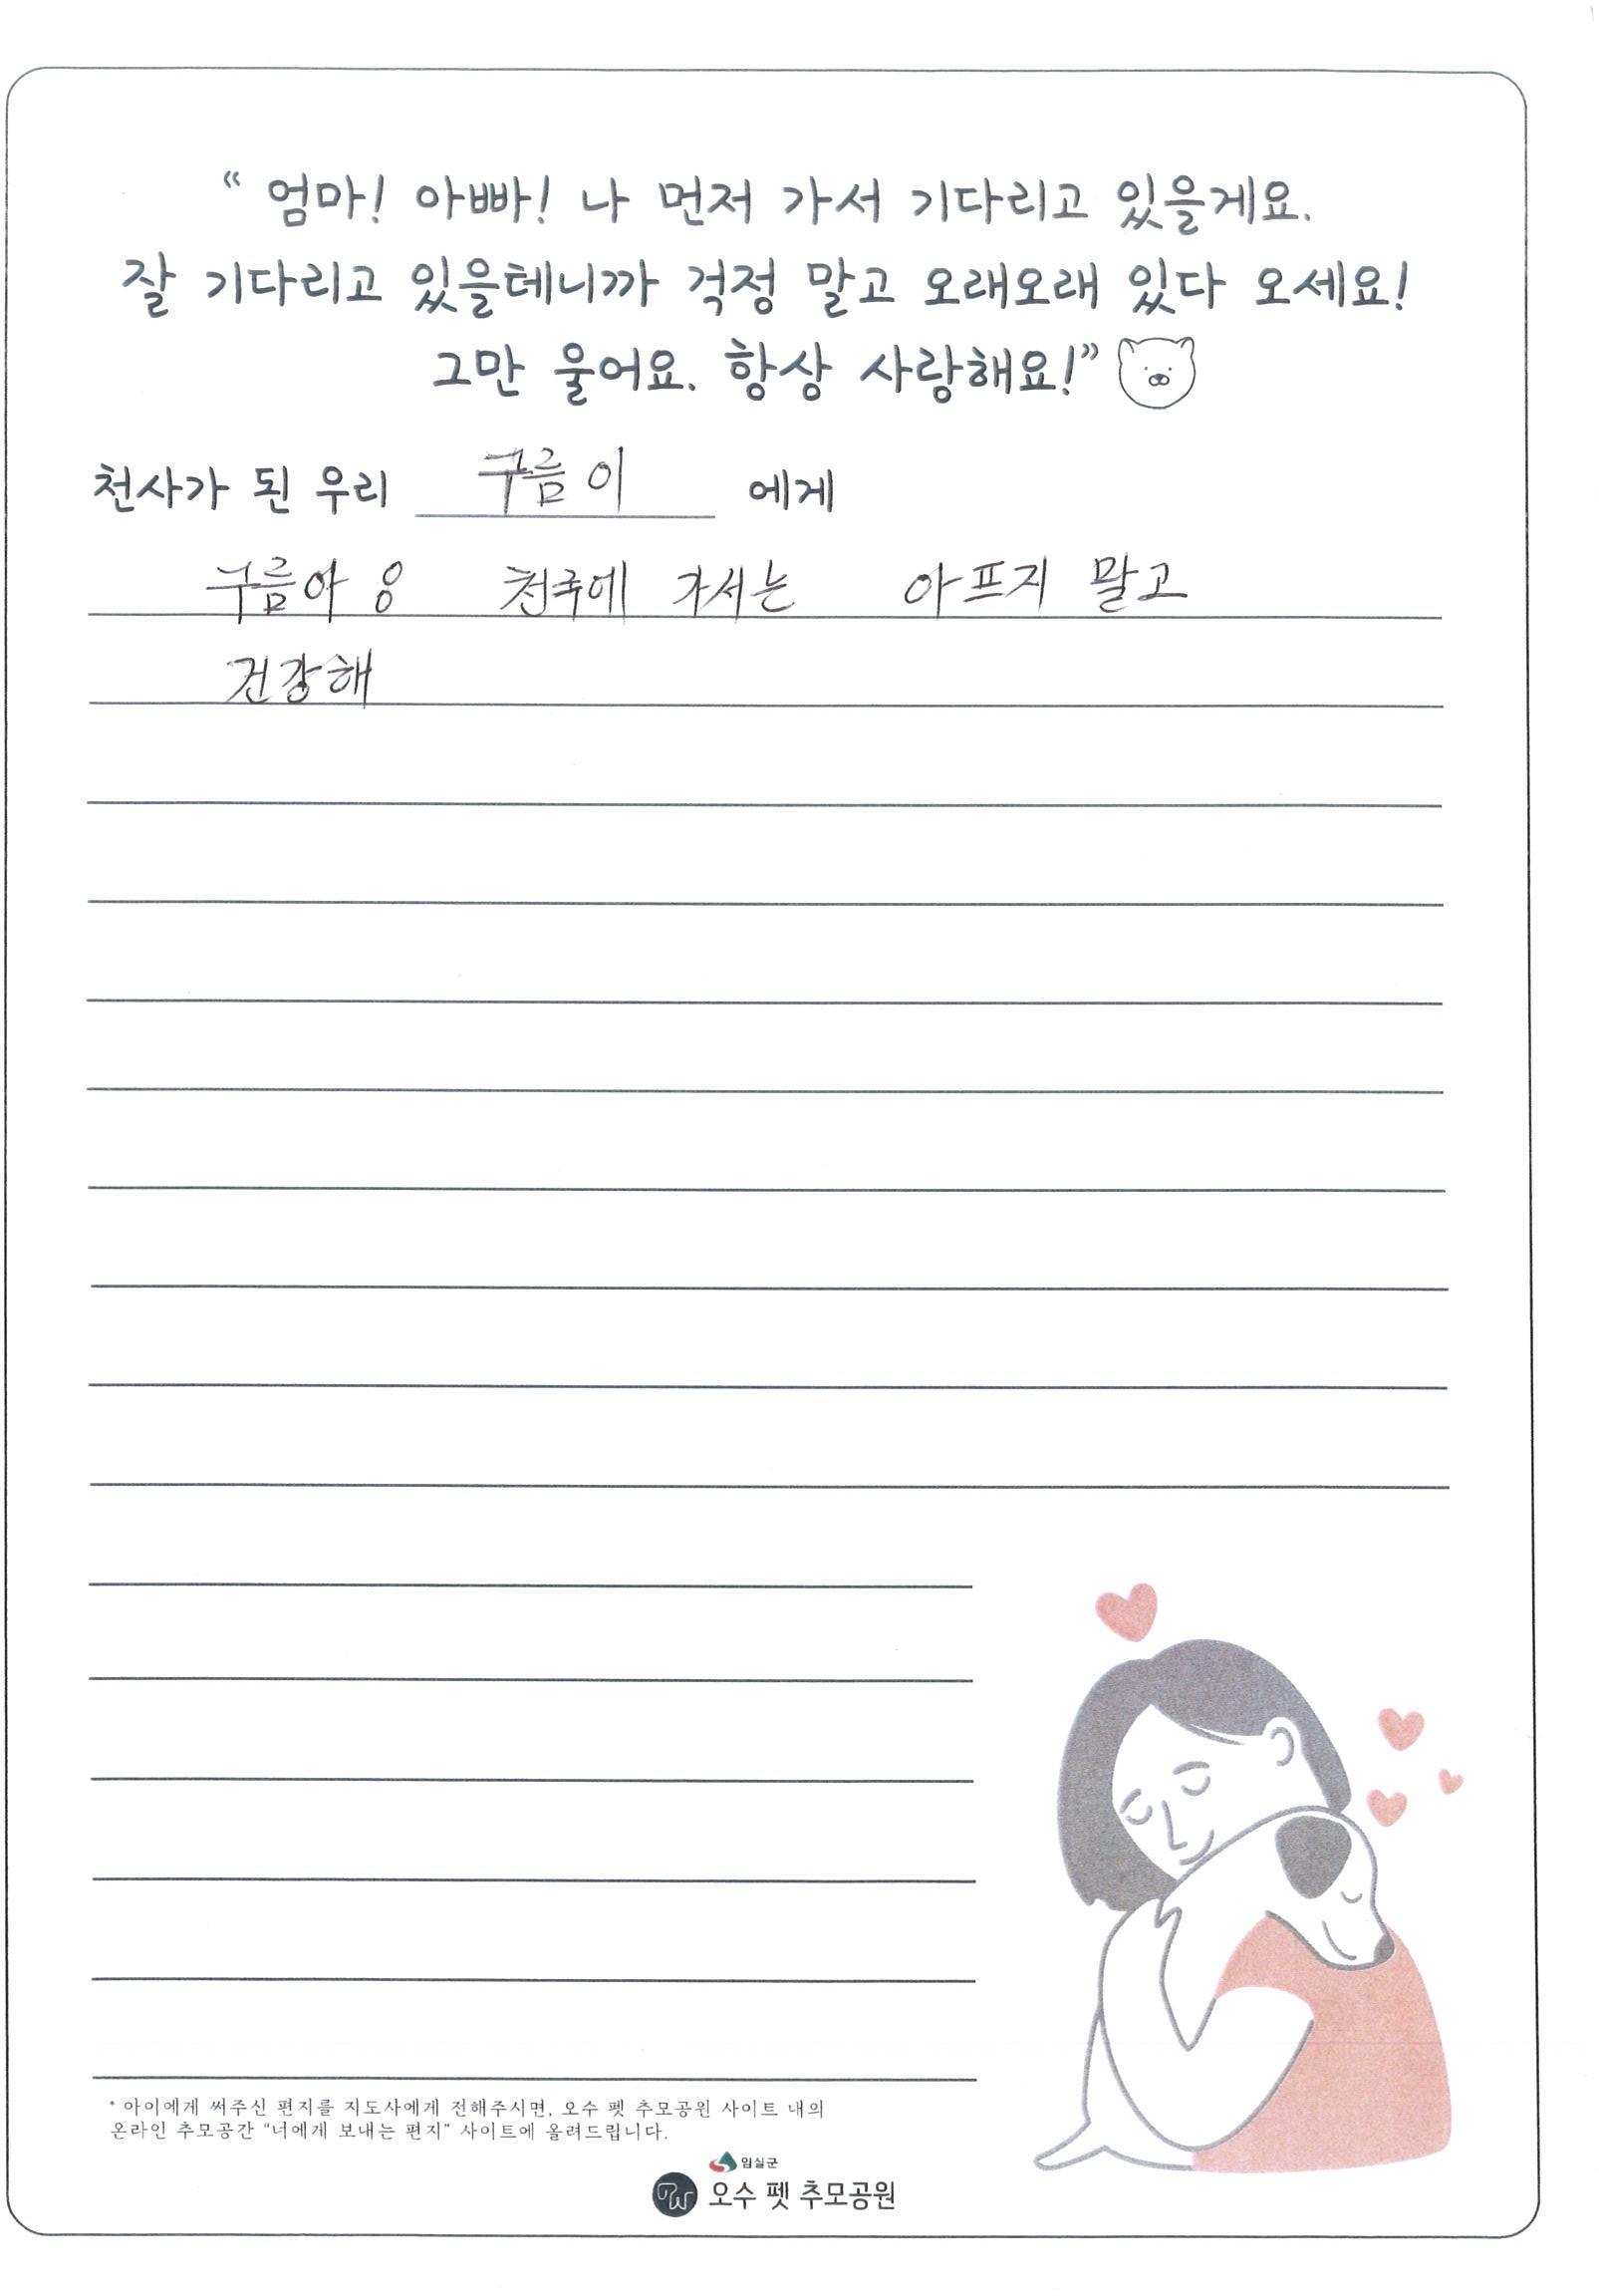 “ 엄마! 아빠! 나 먼저 가서 기다리고 있을게요.
잘 기다리고 있을테니까 걱정 말고 오래오래 있다 오세요!
그만 울어요. 항상 사랑해요!”
천사가 된 우리 구름이 에게
구름아 응 천국에 가서는 아프지 말고
건강해
* 아이에게 써주신 편지를 지도사에게 전해주시면, 오수 펫 추모공원 사이트 내의
온라인 추모공간 “너에게 보내는 편지” 사이트에 올려드립니다.
임실군
오수 펫 추모공원